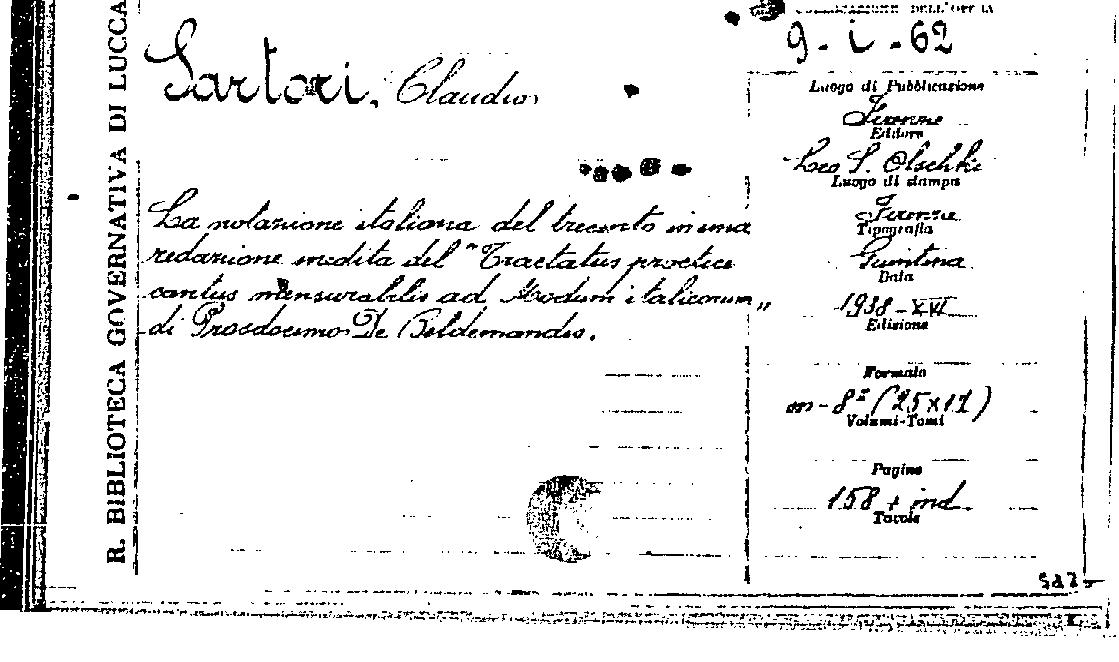 R. BIBLIOTECA GOVERNATIVA DI LUCCA
DELL'OPERA
9 - i - 62
Sartori, Claudio
La notazione italiana del trecento in una
redazione inedita del "Tractatus practice
cantus mensurabilis ad Modum italicorum"
di Prosdocimo De Beldemandis.
Luogo di Pubblicazione
Firenze
Editore
Leo S. Olschki
Luogo di stampa
Firenze
Tipografia
Giuntina
Data
1938 - XVI
Edizione
Formato
in - 8º (25x17)
Volumi-Tomi
Pagine
158 + ind.
Tavole